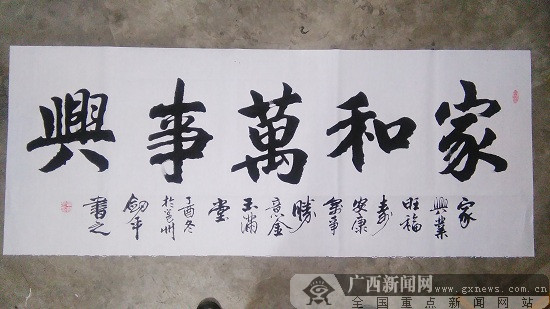 家和萬事興
家
興業
旺福
寿
安康
事
勝
意金
玉滿
堂
丁酉冬
於州
劍平
書之
广西新闻网
www.gxnews.com.cn
全国重点新闻网站